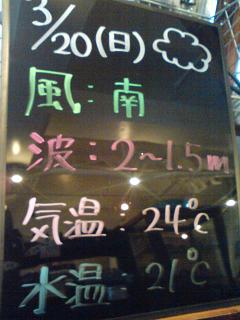 3/20(日)
風:南
波:2~1.5m
気温:24℃
水温:21℃